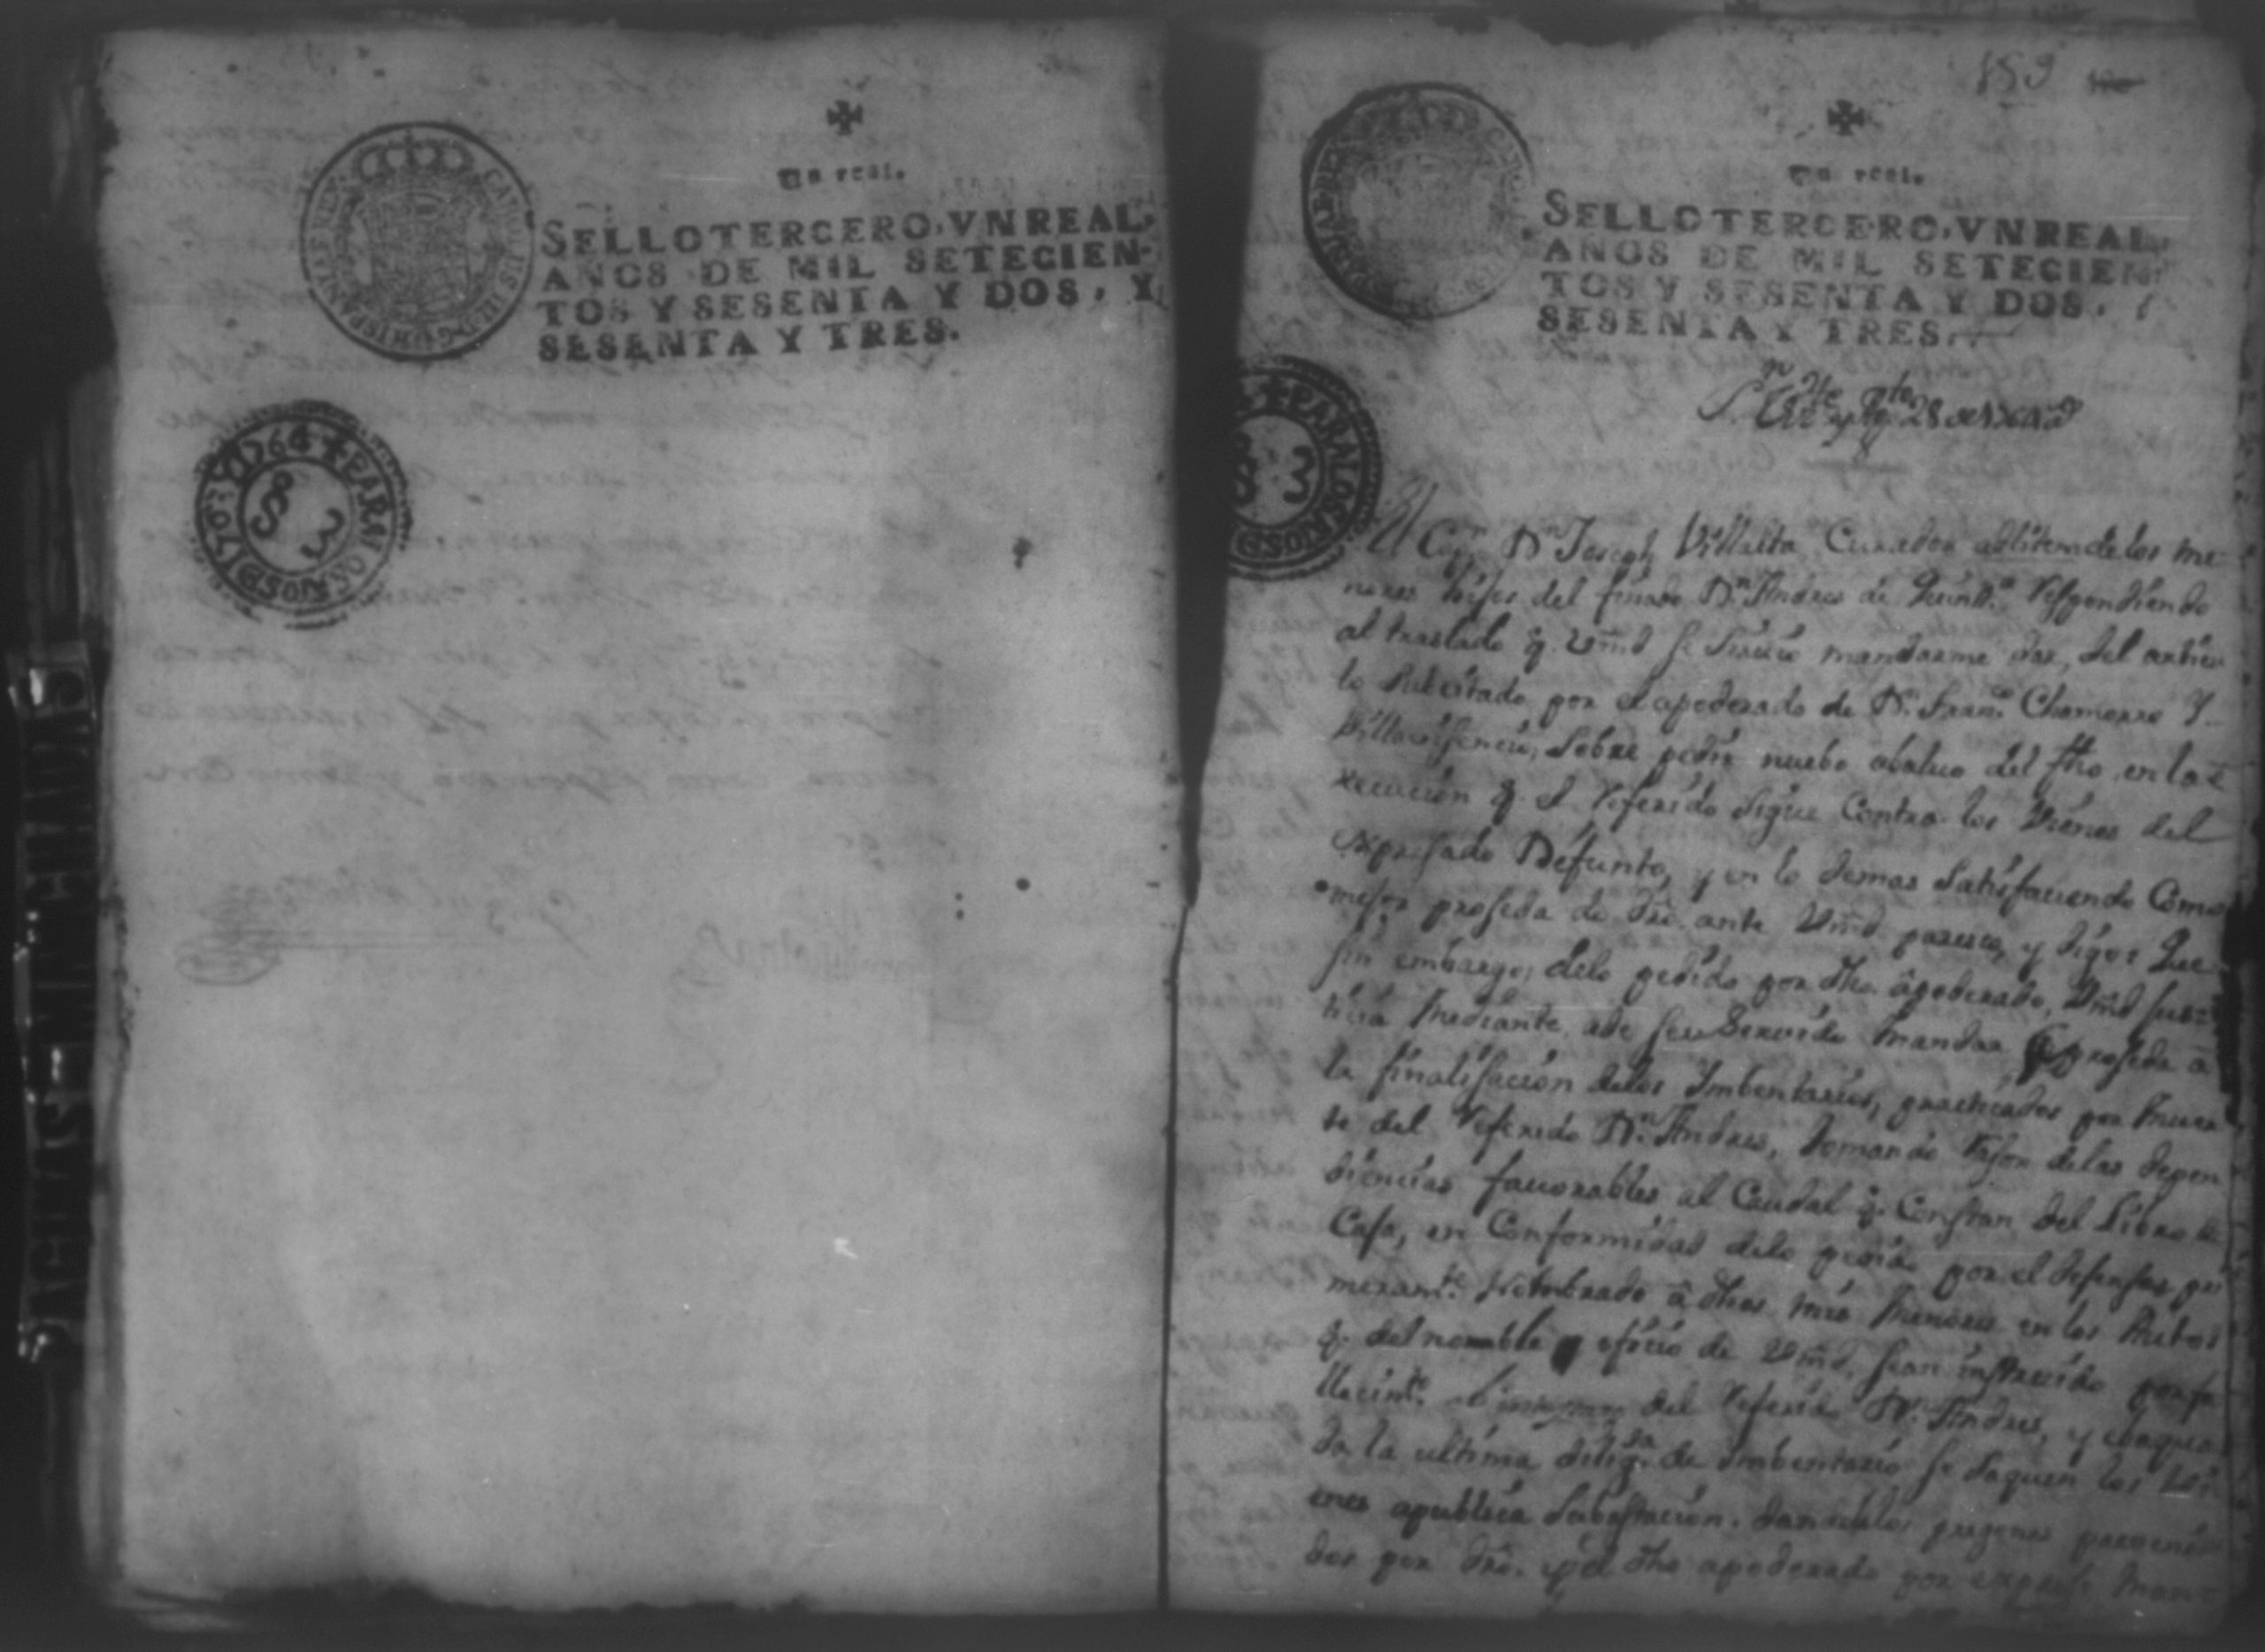 Un real.
SELLO TERCERO, VN REAL,
AÑOS DE MIL SETECIEN-
TOS Y SESENTA Y DOS, Y
SESENTA Y TRES.
1764 ✝ PARA LOS AÑOS DE 1765 Y
S 3
189
Un real.
SELLO TERCERO, VN REAL,
AÑOS DE MIL SETECIEN-
TOS Y SESENTA Y DOS,
SESENTA Y TRES.
PARA LOS AÑOS D
3
El Capn. Dn. Joseph Villalta Curador adlitem de los me
nores hijos del finado Dn. Andres de Quintna. Respondiendo
al traslado q. Vmd se sirvio mandarme dar, del articu
lo subcitado por el apoderado de Dn. Franco. Chamorro Y
Villavisencio, sobre pedir nuebo abaluo del fho, en la e
xecucion q. el Referido sigue Contra los Vienes del
expresado Defunto, y en lo demas satisfaciendo Como
mejor proseda de dro. ante Vmd paresco, y digo: Que
sin embargo, delo pedido por dho. apoderado, Vmd Jus=
ticia mediante, ade ser Servido mandar proseda a
la finalisacion delos Imbentarios, practicados por muer
te del Referido Dn. Andres, tomando rason delas depen
diencias favorables al Caudal q. Constan del Libro de
Casa, en Conformidad delo pedido por el defensor, pri
meramte. Nombrado â dhos. mis Menores en los Autos
q. del nomble oficio de Vmd, sean instruido por fa
llecimto. del Referido Dn. Andres, y
da la ultima diliga. de Imbentario se saquen los Vi
enes apublica Subastacion. dandoles pregones preveni
dos por dro. el dho apoderado por expreso man